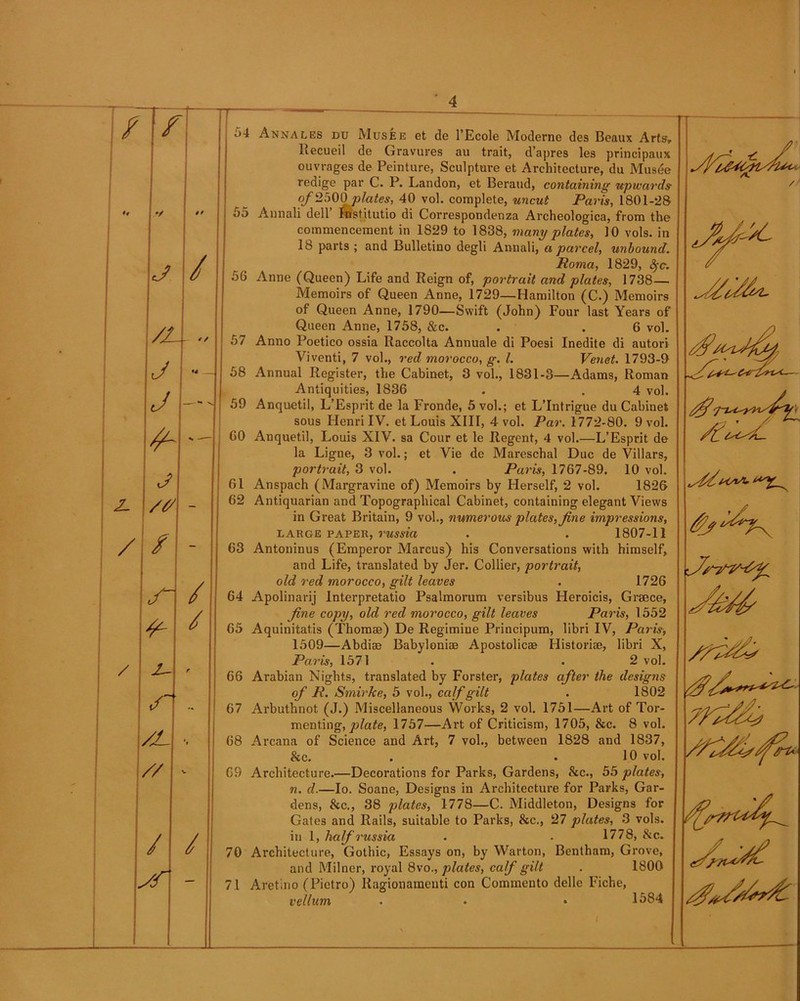 4
54 Annales du Musée et de l'Ecole Moderne des Beaux Arts,
Recueil de Gravures au trait, d'apres les principaux
ouvrages de Peinture, Sculpture et Architecture, du Musée
redige par C. P. Landon, et Beraud, containing upwards
of 2500 plates, 40 vol. complete, uncut Paris, 1801-28
55 Annali dell' Institutio di Correspondenza Archeologica, from the
commencement in 1829 to 1838, many plates, 10 vols. in
18 parts ; and Bulletino degli Annali, a parcel, unbound.
Roma, 1829, &c.
56 Anne (Queen) Life and Reign of, portrait and plates, 1738—
Memoirs of Queen Anne, 1729—Hamilton (C.) Memoirs
of Queen Anne, 1790—Swift (John) Four last Years of
Queen Anne, 1758, &c. . . 6 vol.
57 Anno Poetico ossia Raccolta Annuale di Poesi Inedite di autori
Viventi, 7 vol., red morocco, g. l. Venet. 1793-9
58 Annual Register, the Cabinet, 3 vol., 1831-3—Adams, Roman
Antiquities, 1836 . . 4 vol.
59 Anquetil, L'Esprit de la Fronde, 5 vol.; et L'Intrigue du Cabinet
sous Henri IV. et Louis XIII, 4 vol. Par. 1772-80. 9 vol.
60 Anquetil, Louis XIV. sa Cour et le Regent, 4 vol.—L'Esprit de
la Ligne, 3 vol.; et Vie de Mareschal Duc de Villars,
portrait, 3 vol. . Paris, 1767-89. 10 vol.
61 Anspach (Margravine of) Memoirs by Herself, 2 vol. 1826
62 Antiquarian and Topographical Cabinet, containing elegant Views
in Great Britain, 9 vol., numerous plates, fine impressions,
LARGE PAPER, russia . . 1807-11
63 Antoninus (Emperor Marcus) his Conversations with himself,
and Life, translated by Jer. Collier, portrait,
old red morocco, gilt leaves . 1726
64 Apolinarij Interpretatio Psalmorum versibus Heroicis, Græce,
fine copy, old red morocco, gilt leaves Paris, 1552
65 Aquinitatis (Thomæ) De Regimiue Principum, libri IV, Paris,
1509—Abdiæ Babyloniæ Apostolicæ Historiæ, libri X,
Paris, 1571 . . 2 vol.
66 Arabian Nights, translated by Forster, plates after the designs
of R. Smirke, 5 vol., calf gilt . 1802
67 Arbuthnot (J.) Miscellaneous Works, 2 vol. 1751—Art of Tor-
menting, plate, 1757—Art of Criticism, 1705, &c. 8 vol.
68 Arcana of Science and Art, 7 vol., between 1828 and 1837,
&c. . . 10 vol.
69 Architecture.—Decorations for Parks, Gardens, &c., 55 plates,
n. d.—Io. Soane, Designs in Architecture for Parks, Gar-
dens, &c., 38 plates, 1778—C. Middleton, Designs for
Gates and Rails, suitable to Parks, &c., 27 plates, 3 vols.
in 1, half russia . . 1778, &c.
70 Architecture, Gothic, Essays on, by Warton, Bentham, Grove,
and Milner, royal 8vo., plates, calf gilt . 1800
71 Aretino (Pietro) Ragionamenti con Commento delle Fiche,
vellum . . . 1584